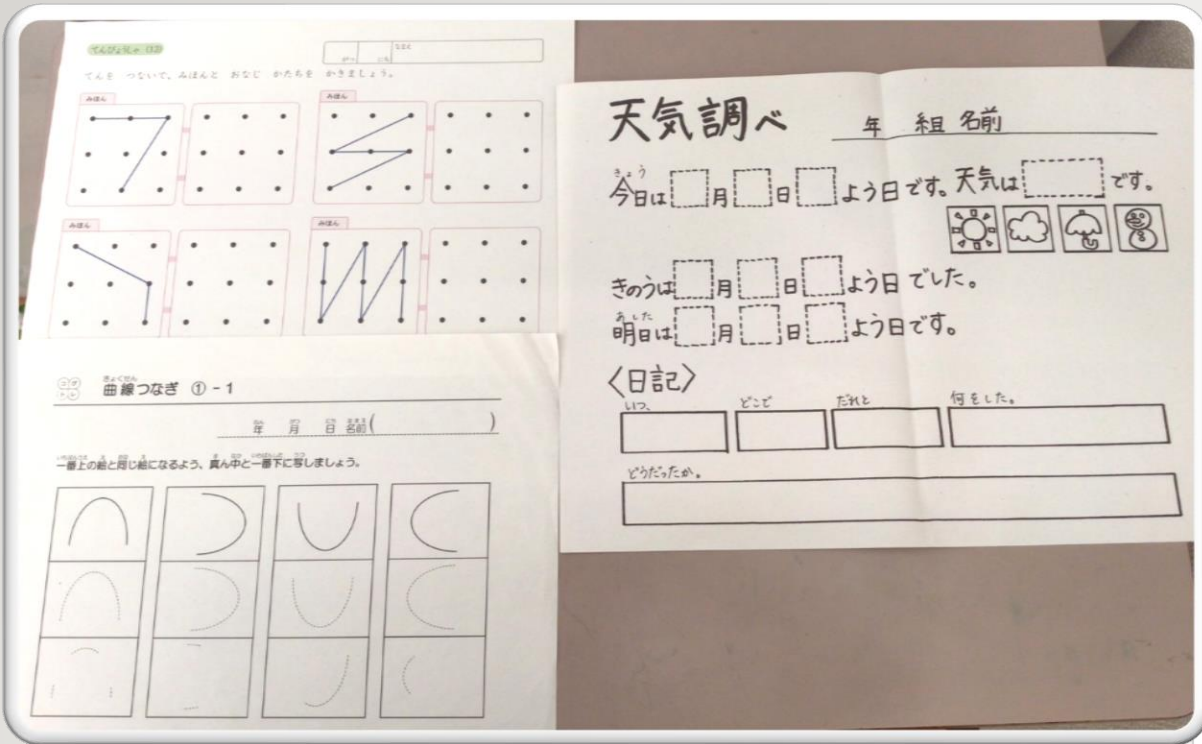 てんびょうしゃ (12)
がつ にち なまえ
てんを つないで、みほんと おなじ かたちを かきましょう。
みほん
みほん
みほん
みほん
曲線つなぎ ①-1
きょくせん
年 月 日 名前( )
ねん がつ にち なまえ
一番上の絵と同じ絵になるよう、真ん中と一番下に写しましょう。
天気調べ 年 組 名前
きょう
今日は 月 日 よう日です。天気は です。
きのうは 月 日 よう日でした。
あした
明日は 月 日 よう日です。
〈日記〉
いつ、 どこで だれと 何をした。
どうだったか。